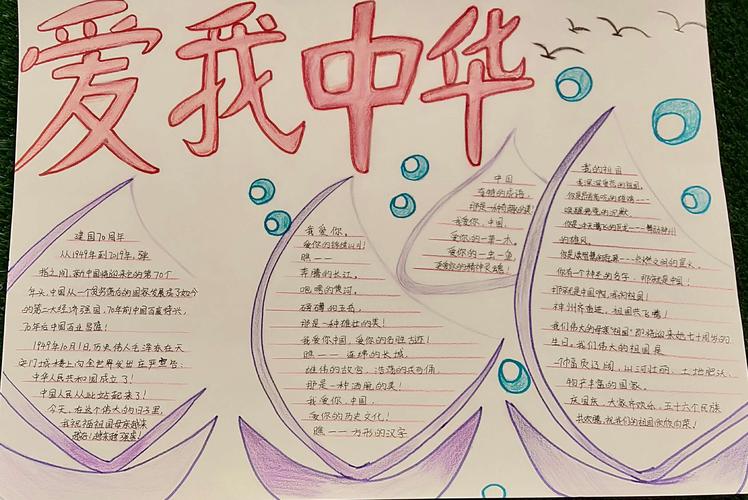 爱我中华
建国70周年
从1949年到2019年,弹
指之间,新中国将迎来它的第70个
年头,中国从一个贫穷落后的国家发展成了如今
的第二大经济强国,70年前中国百废待兴,
70年后中国百业昌盛!
1949年10月1日,历史伟人毛泽东在天
安门城楼上向全世界发出庄严宣告:
中华人民共和国成立了!
中国人民从此站起来了!
今天,在这个伟大的日子里,
我祝福祖国母亲越来
越好!越来越强盛!
我爱你,
爱你的锦绣山川!
瞧一一
奔腾的长江,
咆哮的黄河,
磅礴的五岳,
那是一种雄壮的美!
我爱你中国,爱你的名胜古迹!
瞧一一连绵的长城,
雄伟的故宫,浩荡的兵马俑,
那是一种洒脱的美!
我爱你,中国,
爱你的历史文化!
瞧一一方形的汉字
中国
奇特的成语,
那是一种奇趣的美!
我爱你,中国,
爱你的一草一木,
爱你的一虫一鱼,
更爱你的精神灵魂!
我的祖国
我深深爱恋的祖国,
你是昂首高吭的雄鸡一一
唤醒黎明的沉默,
你是冲天腾飞的巨龙一一舞动神州
的雄风,
你有一个神圣的名字,那就是中国!
那就是中国啊,我的祖国!
神州齐奋进,祖国共飞腾!
我们伟大的母亲"祖国"即将迎来她七十周岁的
生日。我们伟大的祖国是
一个幅员辽阔,山河壮丽,土地肥沃,
物产丰富的国家。
庆国庆,大家齐欢乐,五十六个民族
共欢腾,祝我们的祖国欣欣向荣!